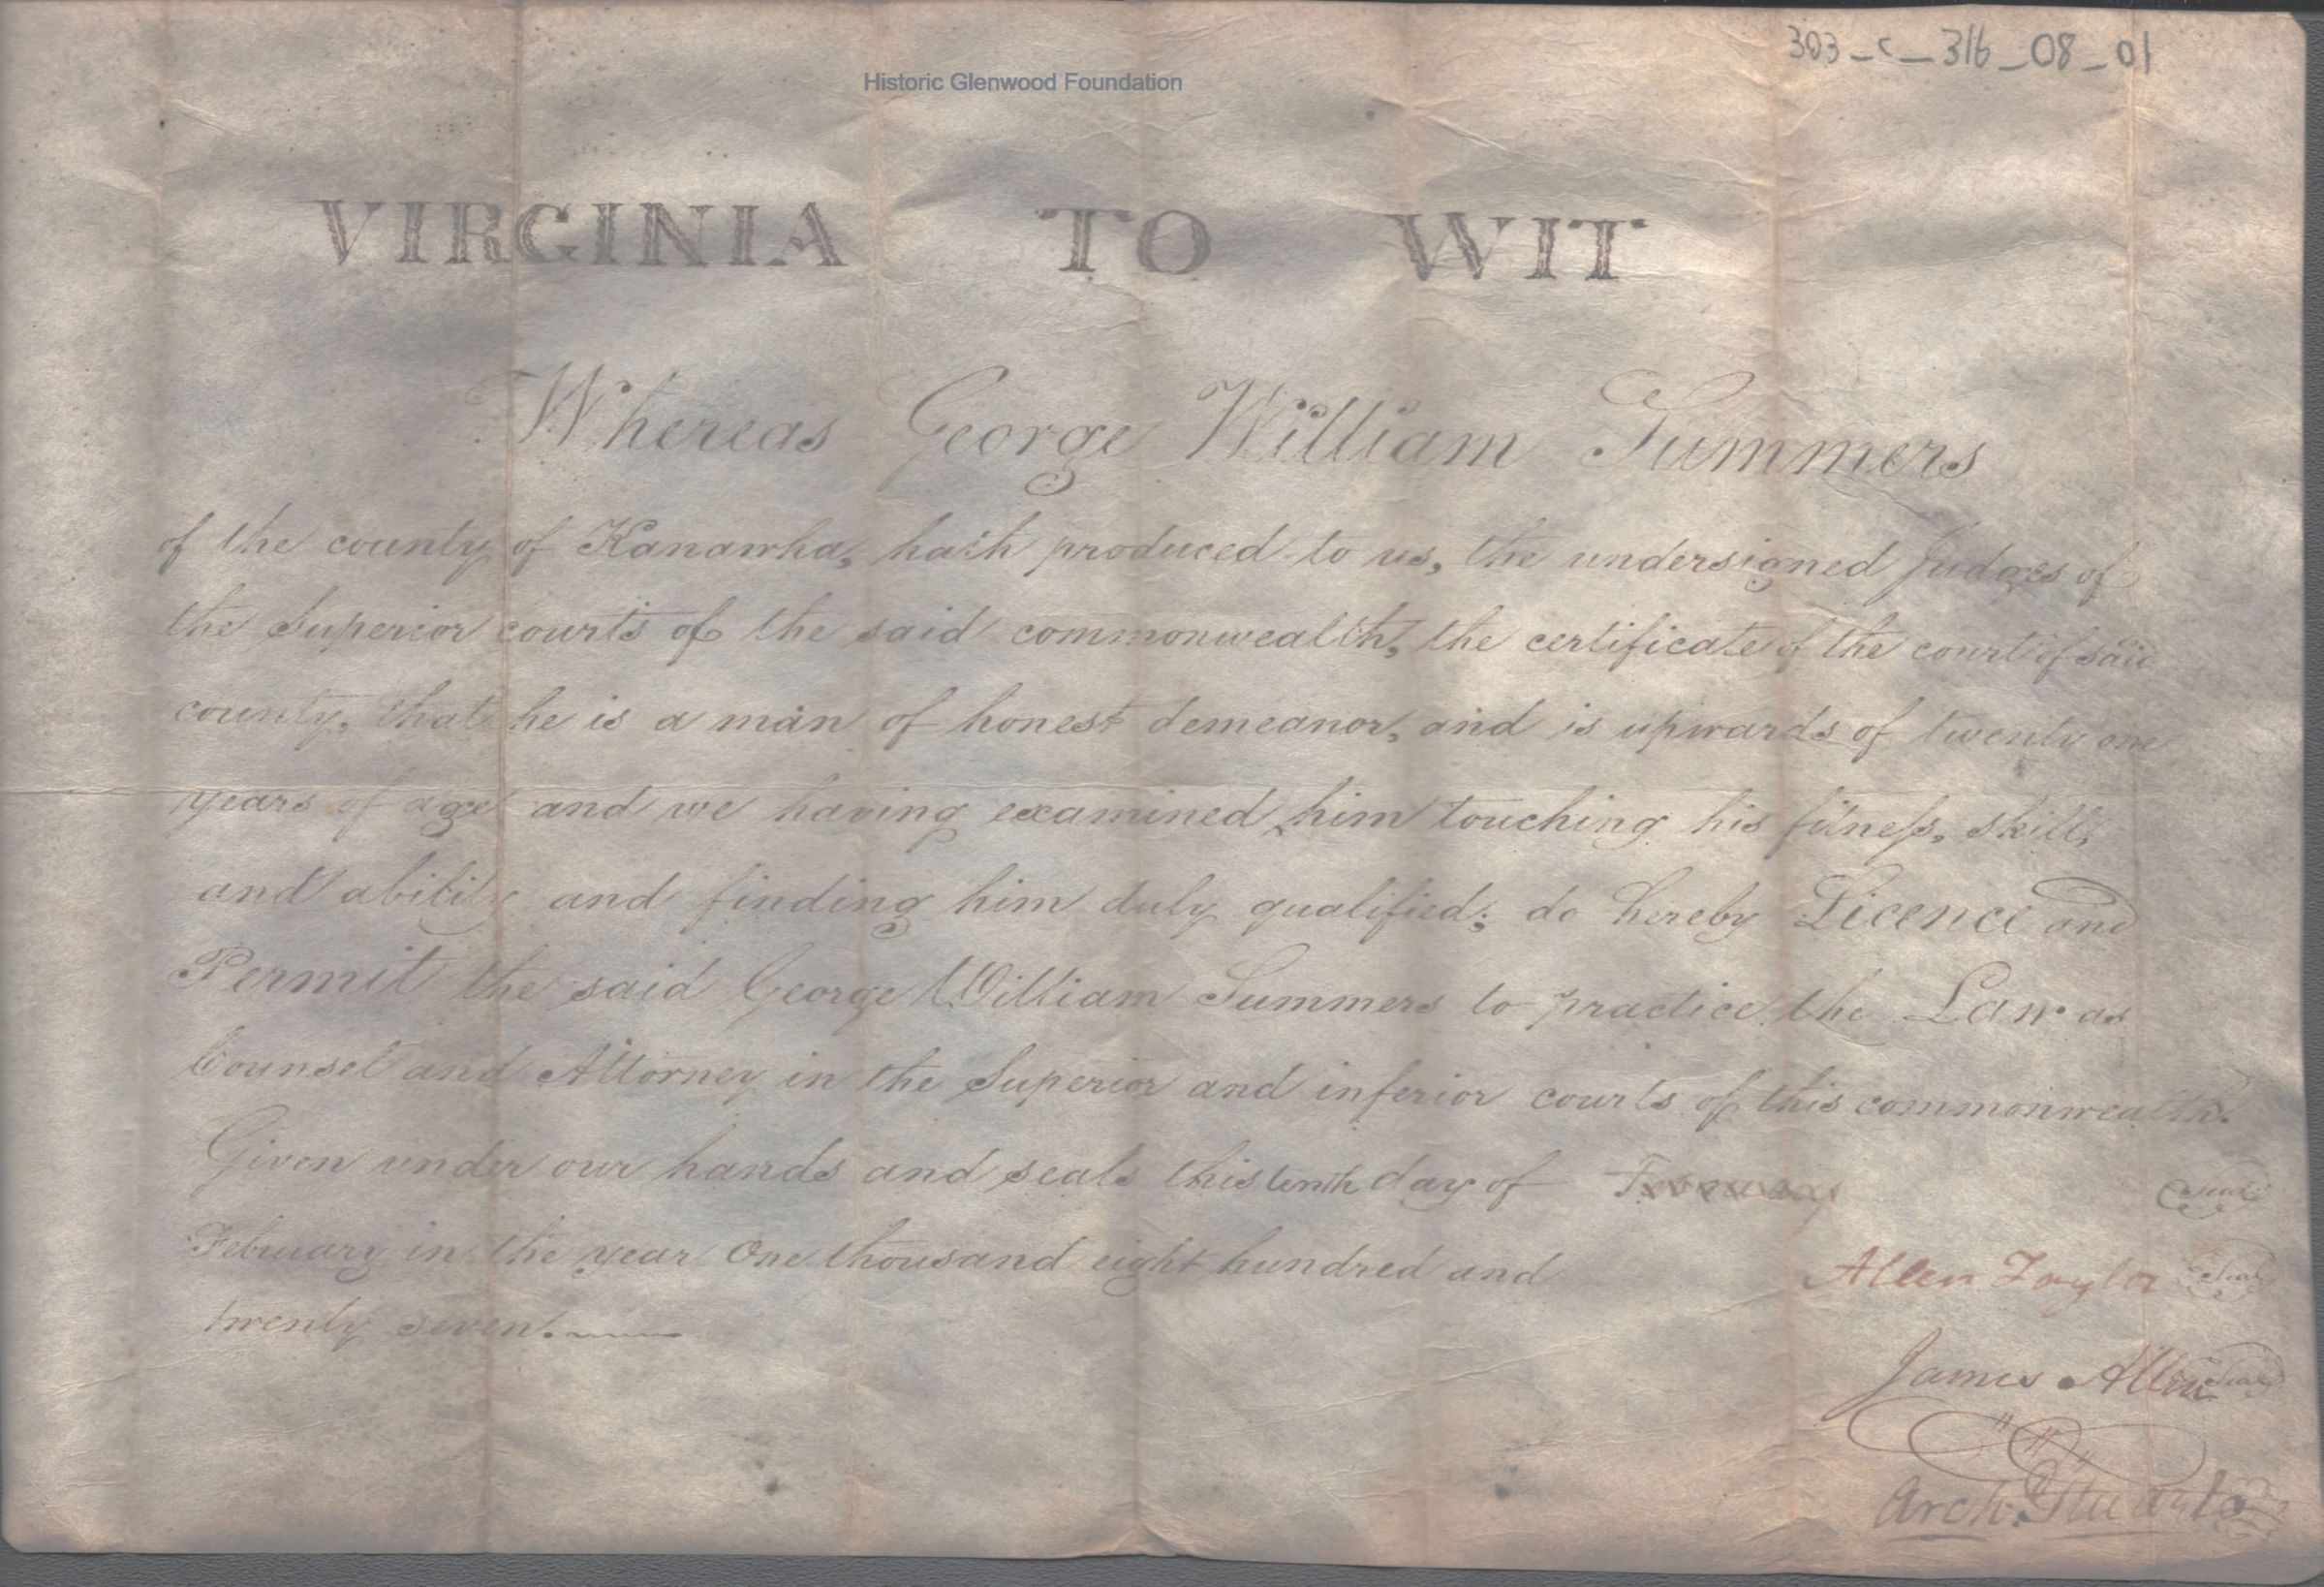 303_c_316_08_01
Historic Glenwood Foundation
VIRGINIA TO WIT
Whereas George William Summers
of the county of Kanawha, hath produced to us, the undersigned Judges of
the Superior courts of the said commonwealth, the certificate of the court of said
county, that he is a man of honest demeanor, and is upwards of twenty one
years of age and we having examined him touching his fitness, skill,
and ability and finding him duly qualified; do hereby Licence and
Permit the said George William Summers to practice the Law as
Counsel and Attorney in the Superior and inferior courts of this commonwealth.
Given under our hands and seals this tenth day of
Seal
February in the year One thousand eight hundred and
Allen Taylor Seal
twenty seven.
James Allen Seal
Arch. Stuart